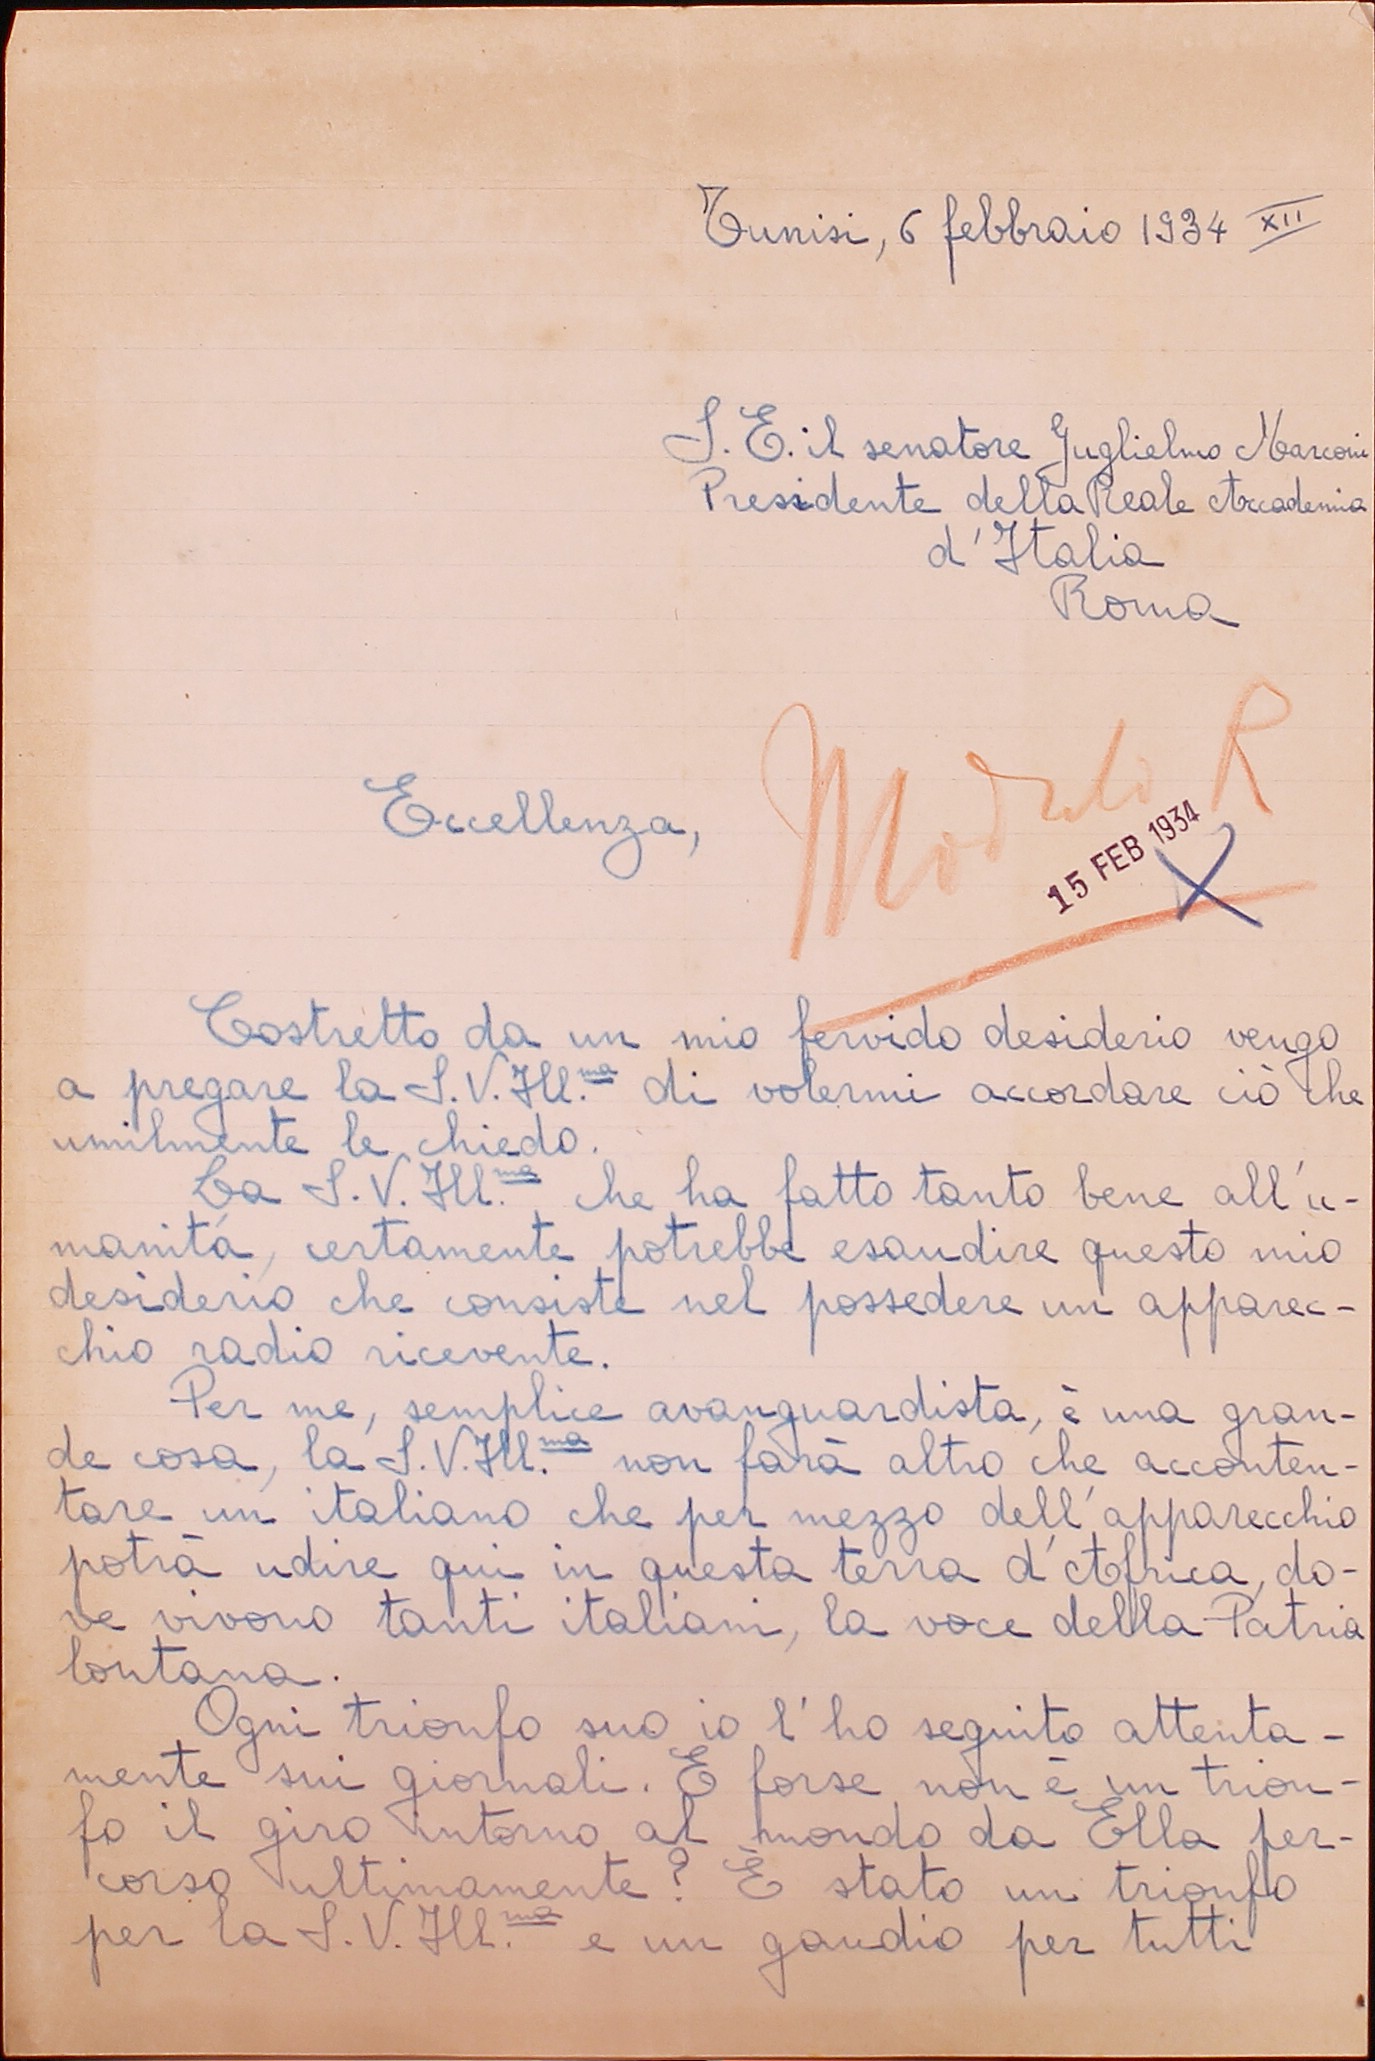 Tunisi, 6 febbraio 1934 XII
S. E. il senatore Guglielmo Marconi
Presidente della Reale Accademia
d'Italia
Roma
Modulo R
Eccellenza,
15 FEB 1934
Costretto da un mio fervido desiderio vengo
a pregare la S. V. Ill.ma di volermi accordare ciò che
umilmente le chiedo.
La S. V. Ill.ma che ha fatto tanto bene all'u-
manitá, certamente potrebbe esaudire questo mio
desiderio che consiste nel possedere un apparec-
chio radio ricevente.
Per me, semplice avanguardista, è una gran-
de cosa, la S. V. Ill.ma non farà altro che acconten-
tare un italiano che per mezzo dell'apparecchio
potrà udire qui in questa terra d'Africa, do-
ve vivono tanti italiani, la voce della Patria
lontana.
Ogni trionfo suo io l'ho seguito attenta-
mente sui giornali. E forse non è un trion-
fo il giro intorno al mondo da Ella per-
corso ultimamente? È stato un trionfo
per la S. V. Ill.ma e un gaudio per tutti